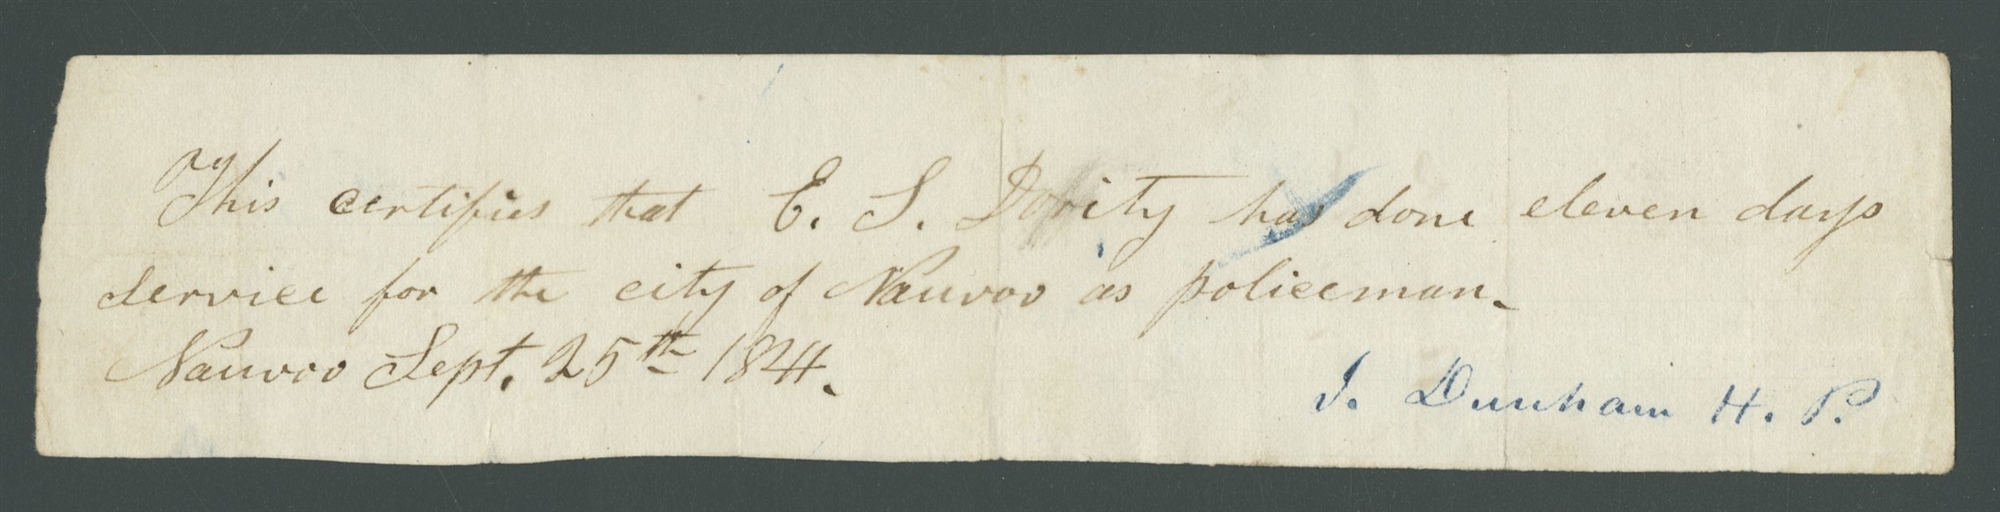 This certifies that E. S. Dority has done eleven days
service for the city of Nauvoo as policeman.
Nauvoo Sept. 25th 1844.
J. Dunham H. P.